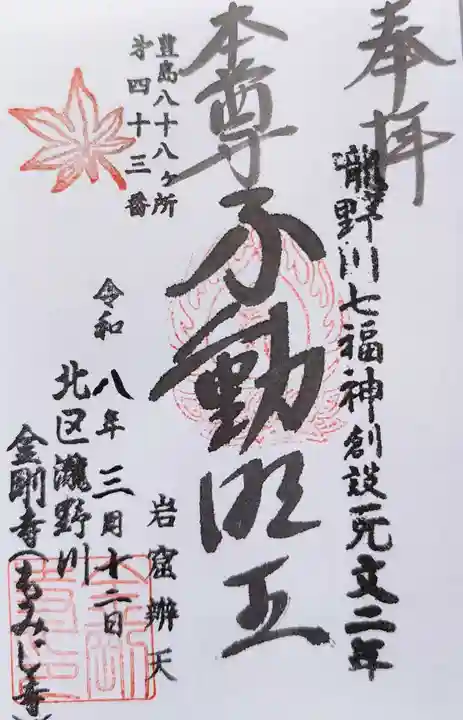 奉拝
瀧野川七福神創設元文二年
本尊不動明王
豊島八十八ヶ所
第四十三番
岩窟辨天
令和八年三月十二日
北区瀧野川
金剛寺(もみじ寺)